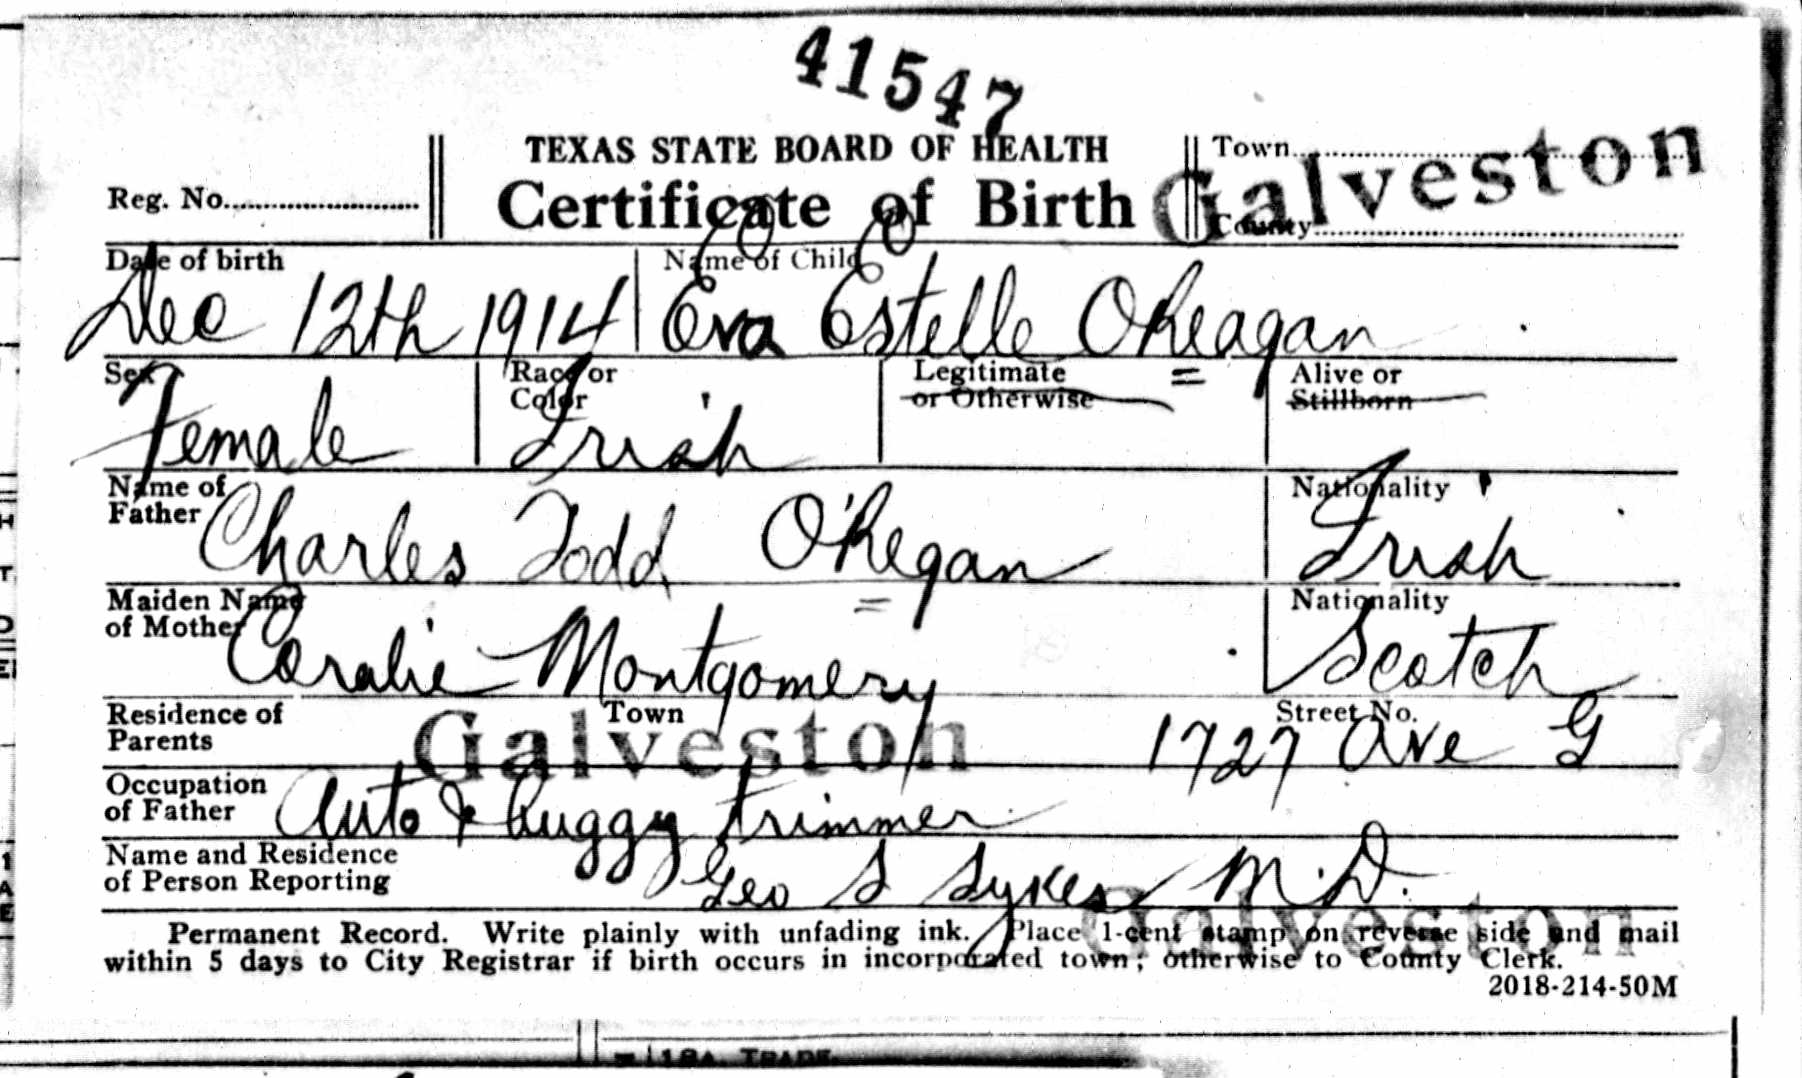 41547
TEXAS STATE BOARD OF HEALTH
Certificate of Birth
Reg. No.
Town
Galveston
County
Date of birth
Dec 12th 1914
Name of Child
Eva Estelle OKeagan
Sex
Female
Race or
Color
Irish
Legitimate
or Otherwise
Alive or
Stillborn
Name of
Father
Charles Todd O'Kegan
Nationality
Irish
Maiden Name
of Mother
Coralie Montgomery
Nationality
Scotch
Residence of
Parents
Town
Galveston
Street No.
1727 Ave G
Occupation
of Father
Auto & Buggy trimmer
Name and Residence
of Person Reporting
Geo S Sykes M.D.
Galveston
Permanent Record. Write plainly with unfading ink. Place 1-cent stamp on reverse side and mail
within 5 days to City Registrar if birth occurs in incorporated town; otherwise to County Clerk.
2018-214-50M
18A. TRADE